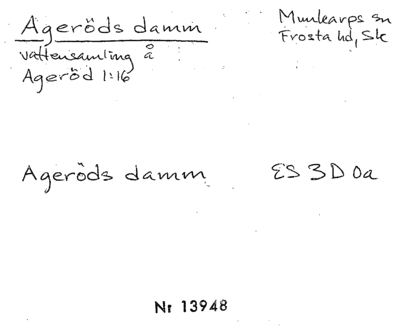 Ageröds damm
Munkarps sn
Frosta hd, Sk
vattensamling å
Ageröd 1:16
Ageröds damm
ES 3D 0a
Nr 13948